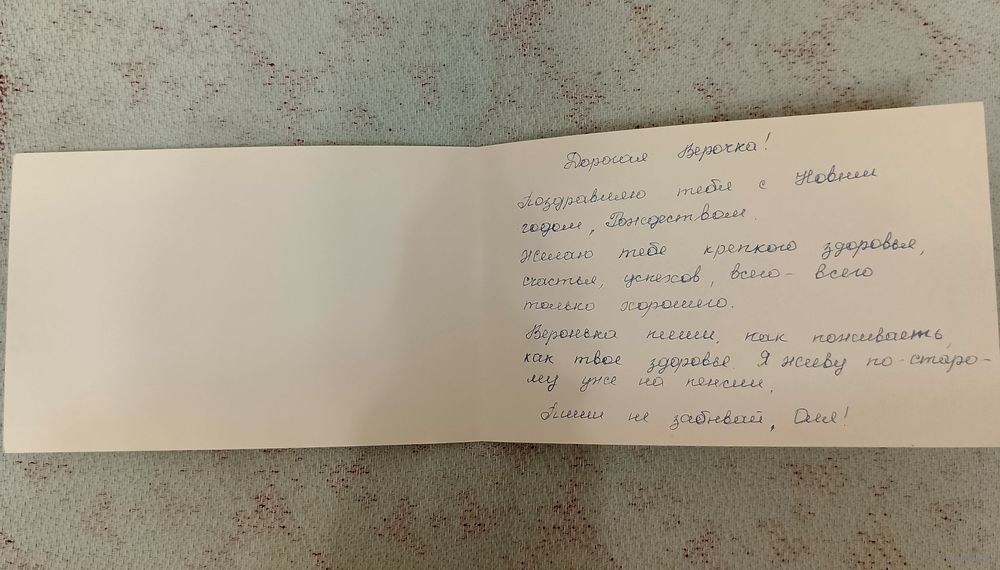 Дорогая Верочка!
Поздравляю тебя с Новым
годом, Рождеством.
Желаю тебе крепкого здоровья,
счастья, успехов, всего-всего
только хорошего.
Веронька пиши, как поживаеть,
как твое здоровье. Я живу по-старо-
му уже на пенсии,
Пиши не забывай, Оля!